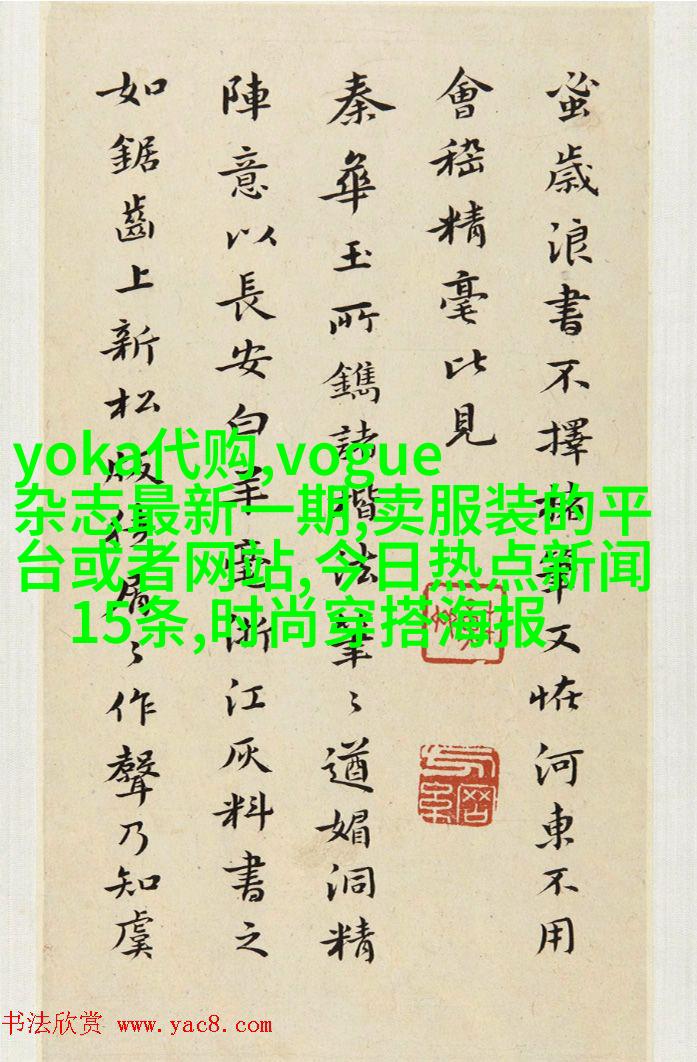 蚤歲浪書不擇楮筆又恠河東不用
會稽精毫此見
秦華玉所鐫諸楷法筆々遒媚洞精
陣意以長安白羊毫浙江灰料書之
如鋸齒上新松版得屑々作聲乃知虞
yoka代购,vogue
杂志最新一期,卖服装的平
台或者网站,今日热点新闻
15条,时尚穿搭海报
书法欣赏 www.yac8.com